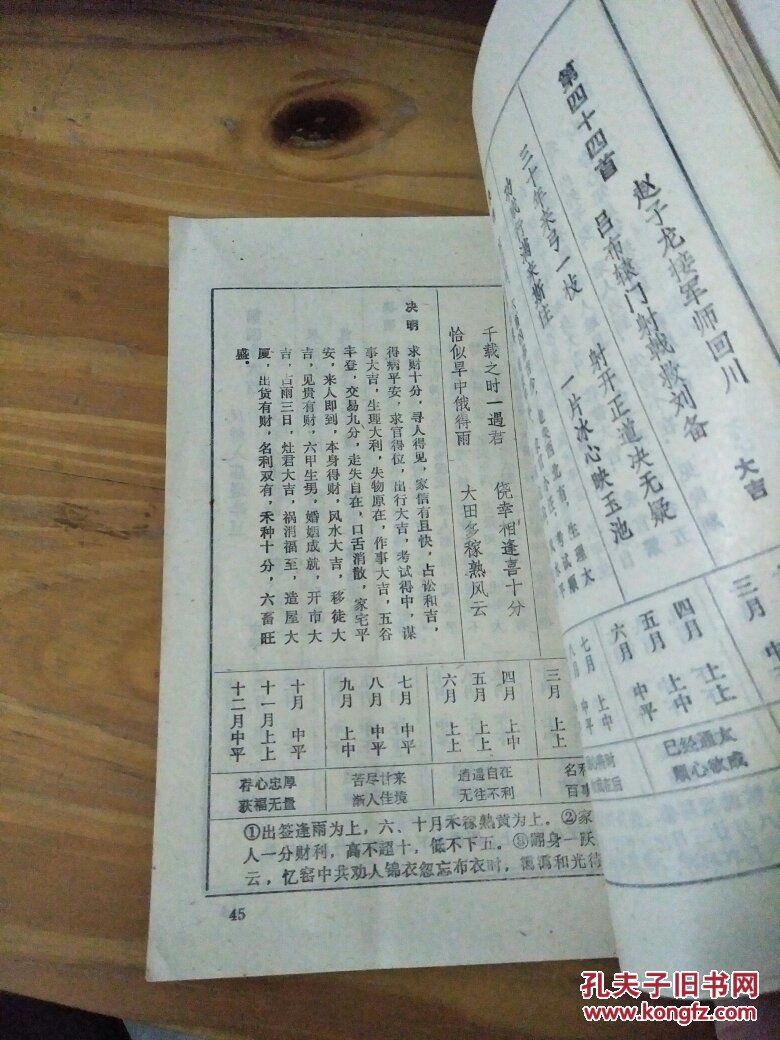 第四十四首
赵子龙接军师回川 大吉
吕布辕门射戟救刘备
射开正道决无疑
一片冰心映玉池
三月
四月 上中
五月 中平
六月 上上
七月 上中
千载之时一遇君 侥幸相逢喜十分
恰似旱中俄得雨 大田多稼熟风云
决明
求财十分，寻人得见，家信有且快，占讼和吉，
得病平安，求官得位，出行大吉，考试得中，谋
事大吉，生理大利，失物原在，作事大吉，五谷
丰登，交易九分，走失自在，口舌消散，家宅平
安，来人即到，本身得财，风水大吉，移徒大
吉，见贵有财，六甲生男，婚姻成就，开市大
吉，占雨三日，灶君大吉，祸消福至，造屋大
厦，出货有财，名利双有，禾种十分，六畜旺
盛。
三月 上上
四月 上中
五月 上上
六月 上上
七月 上中
八月 中平
九月 上中
十月 中平
十一月上上
十二月中平
逍遥自在
无往不利
苦尽甘来
渐入佳境
存心忠厚
获福无量
①出签逢雨为上，六、十月禾稼熟黄为上。②家
人一分财利，高不超十，低不下五。③翻身一跃
云，忆窑中共劝人锦衣忽忘布衣时，霭霭和光待
45
孔夫子旧书网
www.kongfz.com